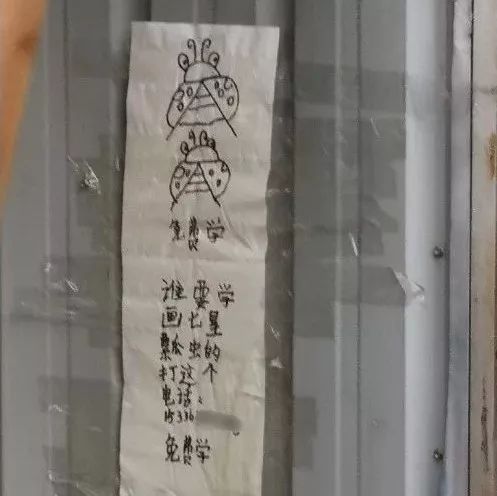 免费学
谁要学
画七星
瓢虫的
打这个
电话、
15336
免费学